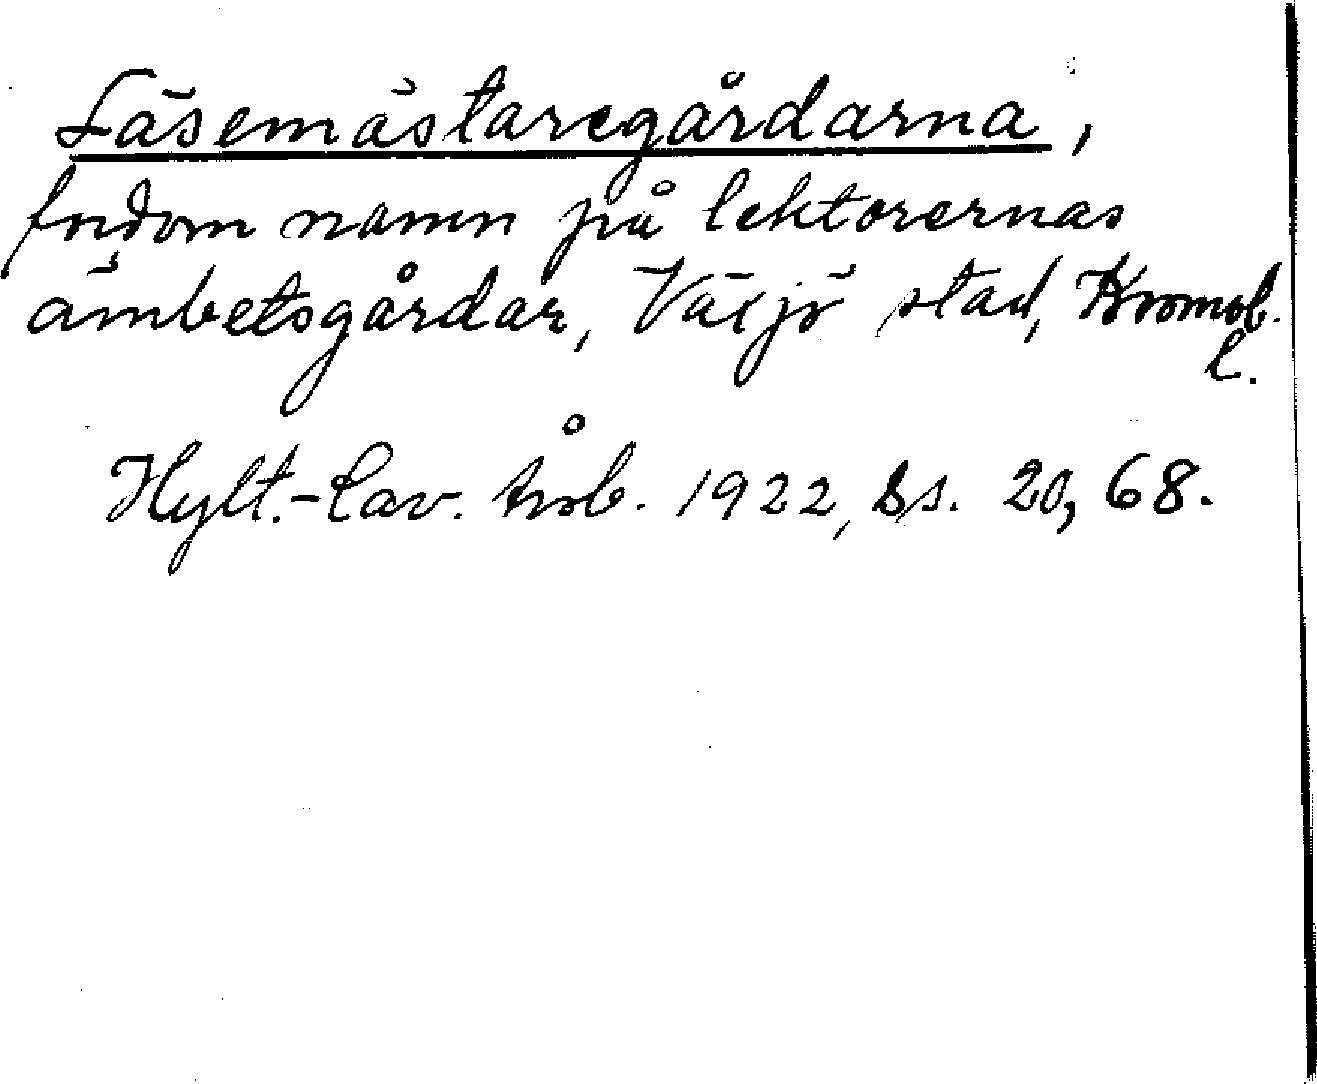 Läsemästaregårdarna,
fordom namn på lektorernas
ämbetsgårdar, Växjö stad, Kronob.
l.
Hylt.-Cav. årsb. 1922, ss. 20, 68.